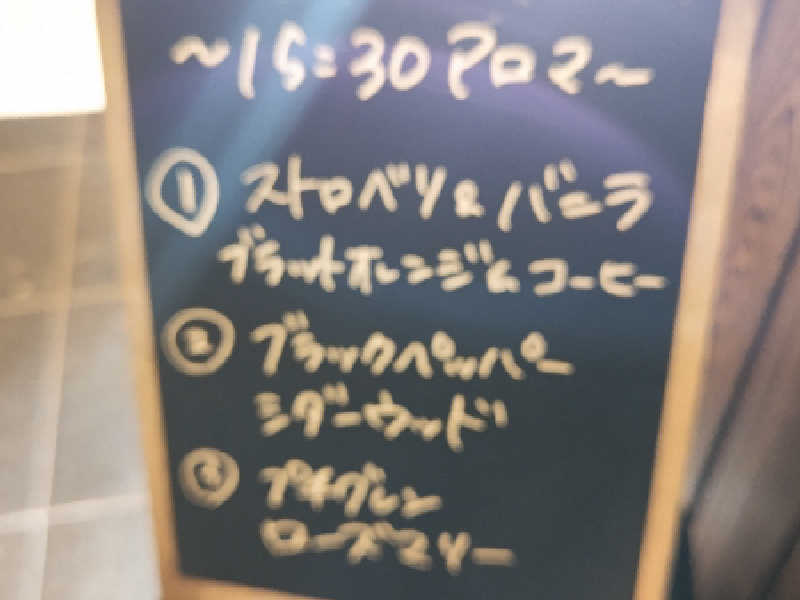 ～15:30アロマ～
① ストロベリ&バニラ
ブラッドオレンジ&コーヒー
② ブラックペッパー
シダーウッド
③ プチグレン
ローズマリー